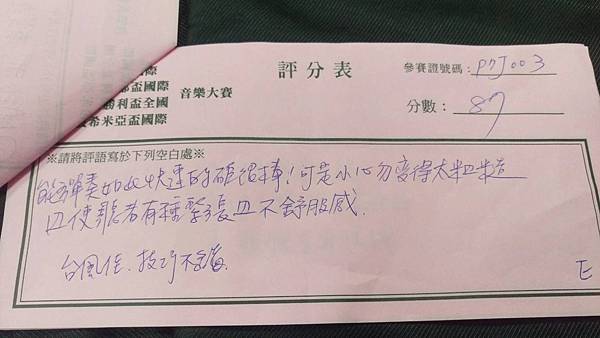 評分表
參賽證號碼：P7J003
國際
盃國際
勝利盃全國
希米亞盃國際
音樂大賽
分數：87
※請將評語寫於下列空白處※
能彈奏如此快速的確很棒！可是小心勿變得太粗糙
且使聽者有種緊張且不舒服感.
台風佳、技巧不錯
E